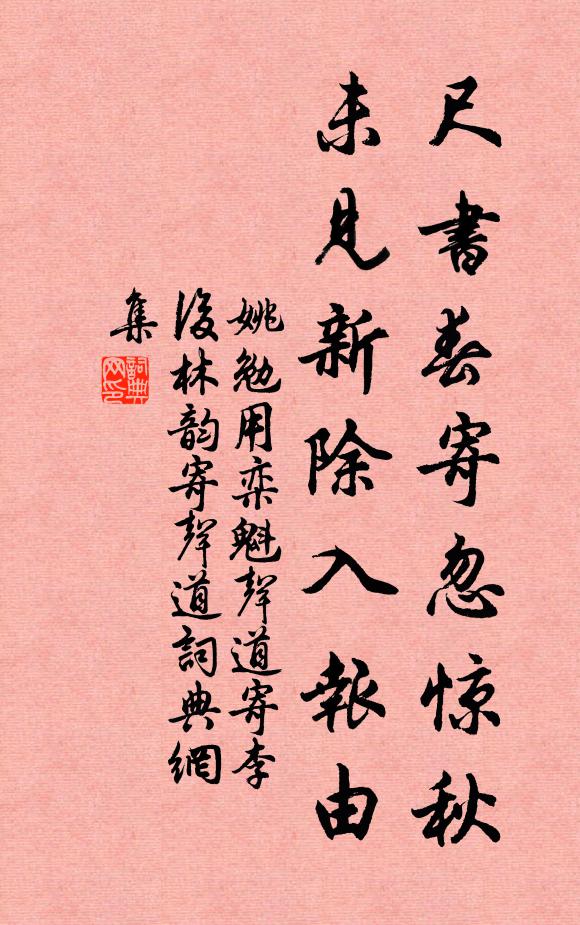 尺書春寄忽惊秋
未見新除入報由
姚勉用栾魁聲道寄李
後林韵寄聲道詞典網
集
詞典網印